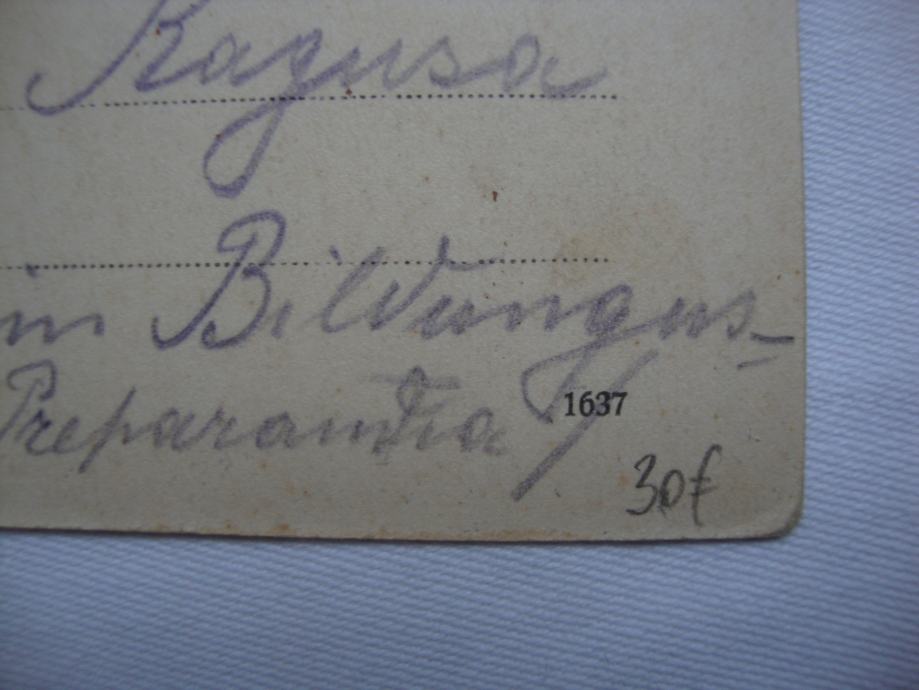 Ragusa
im Bildungs-
Preparandia
1637
30€